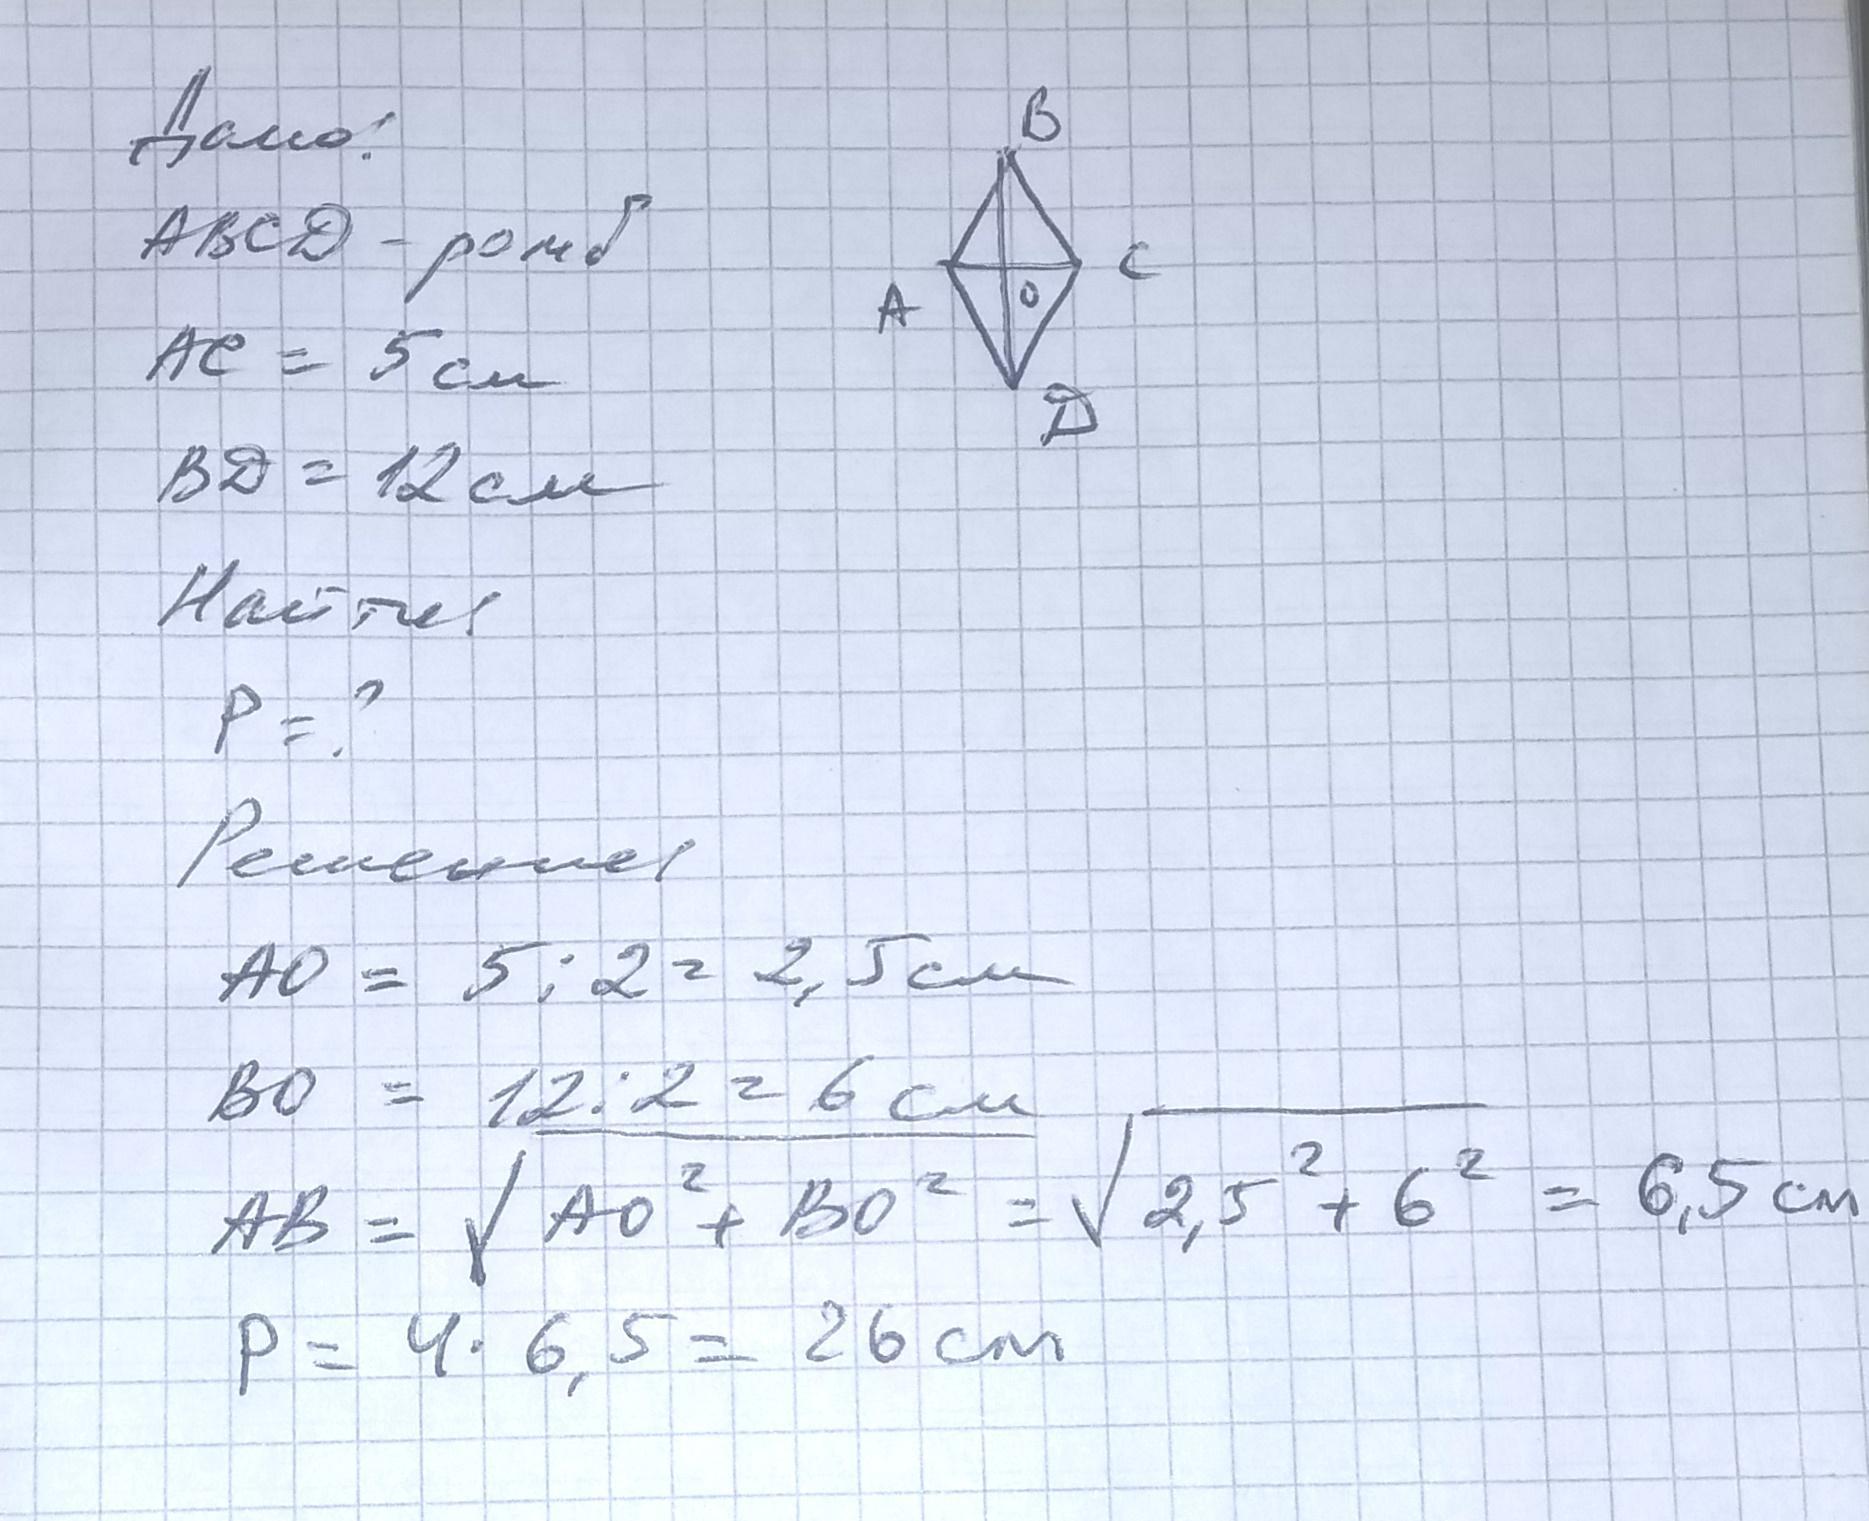 Дано:
ABCD - ромб
AC = 5 см
BD = 12 см
Найти:
P = ?
Решение:
AO = 5 : 2 = 2,5 см
BO = 12 : 2 = 6 см
AB = √AO² + BO² = √2,5² + 6² = 6,5 см
P = 4 · 6,5 = 26 см
B
A
C
O
D